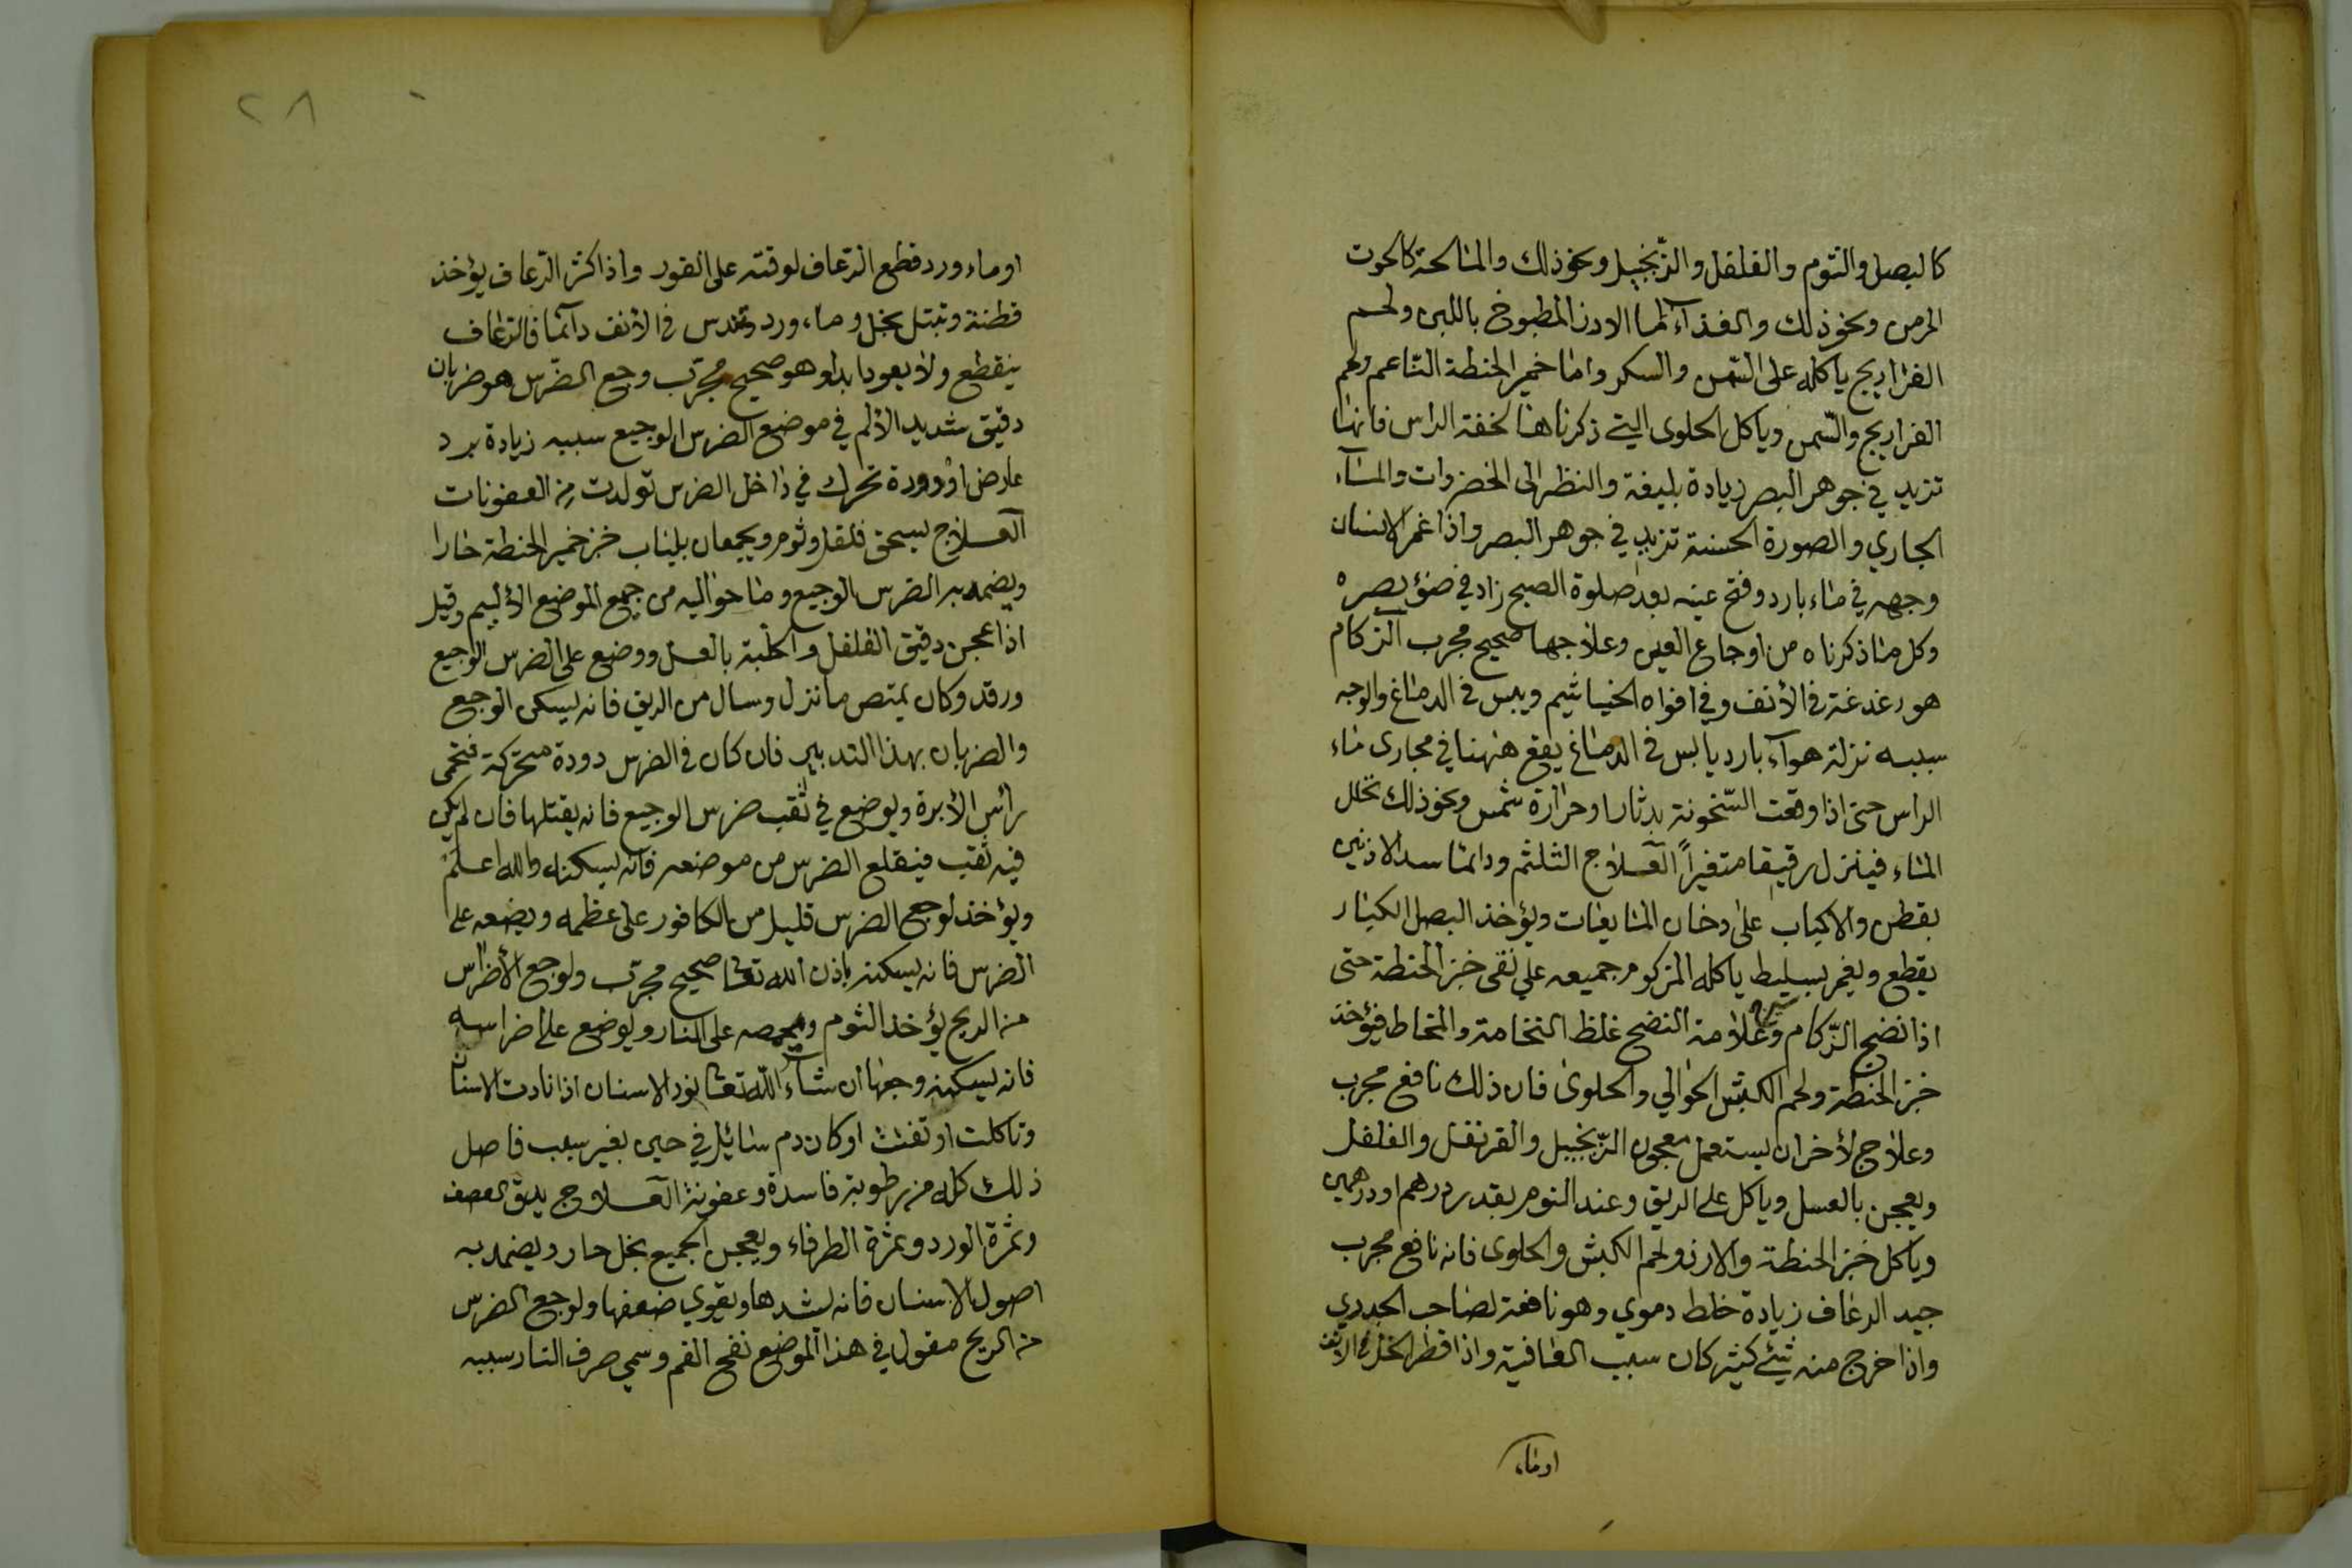 كالبصل والثوم والفلفل والزنجبيل ونحو ذلك والمالحة كالحوت
المر من ونحو ذلك والغذاء لها الارز المطبوخ باللبن ولحم
الفراريج ياكله على السمن والسكر واما خمير الحنطة الناعم ولحم
الفراريج والسمن وياكل الحلوى التي ذكرناها لخفة الراس فانها
تزيد في جوهر البصر زيادة بليغة والنظر الى الخضروات والماء
الجاري والصورة الحسنة تزيد في جوهر البصر واذا غمر الانسان
وجهه في ماء بارد وفتح عينه بعد صلوة الصبح زاد في ضوٴ بصره
وكل ما ذكرناه من اوجاع العين وعلاجها صحيح مجرب الزكام
هو دغدغة في الأنف وفي افواه الخياشيم ويبس في الدماغ والوجه
سببه نزلة هوآء بارد يابس في الدماغ يقع ههنا في مجارى ماء
الراس حتى اذا وقعت السّخونة بدثار او حرارة شمس ونحو ذلك تحلل
الماء فينزل رقيقا متغيراً العلاج التلثم ودائما سد الاذنين
بقطن والاكباب على دخان المايعات ويؤخذ البصل الكبار
يقطع ويغمر بسليط ياكله المزكوم جميعه على نقى خبز الحنطة حتى
اذا نضج الزّكام وعلامة النضج غلظ النخامة والمخاط فيؤخذ
خبز الحنطة ولحم الكبش الحوالي والحلوى فان ذلك نافع مجرب
وعلاج لأخر ان يستعمل معجون الزّنجبيل والقرنفل والفلفل
ويعجن بالعسل وياكل على الريق وعند النوم بقدر درهم او درهمين
وياكل خبز الحنطة والارز ولحم الكبش والحلوى فانه نافع مجرب
جيد الرعاف زيادة خلط دموي وهو نافعة لصاحب الجدري
واذا خرج منه شيٴ كثير كان سبب العافية واذا قطر الخل في الانف
او ماء
٢٨
او ماء ورد قطع الرّعاف لوقته على الفور واذا كثر الرّعاف يؤخذ
قطنة وتبتل بخل وماء ورد وتندس في الأنف دآئما فالرّعاف
ينقطع ولا يعود ابدا وهو صحيح مجرّب وجع الضّرس هو ضربان
دقيق شديد الألم في موضع الضرس الوجيع سببه زيادة برد
عارض او دودة تحرك في داخل الضرس تولدت من العفونات
العلاج يسحق فلفل وثوم ويجمعان بلباب خبز خمير الحنطة حارا
ويضمد به الضرس الوجيع وما حواليه من جمع الموضع الأليم وقيل
اذا عجن دقيق الفلفل والحلبة بالعسل ووضع على الضرس الوجيع
ورقد وكان يمتص ما نزل وسال من الريق فانه يسكن الوجع
والضربان بهذا التدبير فان كان في الضرس دودة متحركة فتحمى
رأس الأبرة ويوضع في ثقب ضرس الوجيع فانه يقتلها فان لم يكن
فيه ثقب فيقلع الضرس من موضعه فانه يسكنه والله اعلم
ويؤخذ لوجع الضرس قليل من الكافور على عظمه ويضعه على
الضرس فانه يسكنه باذن الله تعالى صحيح مجرّب ولوجع الأضراس
من الريح يؤخذ الثوم ويحمصه على النار ويوضع على اضراسه
فانه يسكن وجعها ان شآء اللّه تعالى الاسنان اذا الاسنان
وتاكلت او تفتت او كان دم سائل في حين بغير سبب فاصل
ذلك كله من رطوبة فاسدة وعفونة العلاج يدق العصف
وثمرة الورد وثمرة الطرفاء ويعجن الجميع بخل حار ويضمد به
اصول الاسنان فانه يشدها ويقوي ضعفها ولوجع الضرس
من الريح مقول في هذا الموضع نفخ الفم وسمي حرف النار سببه